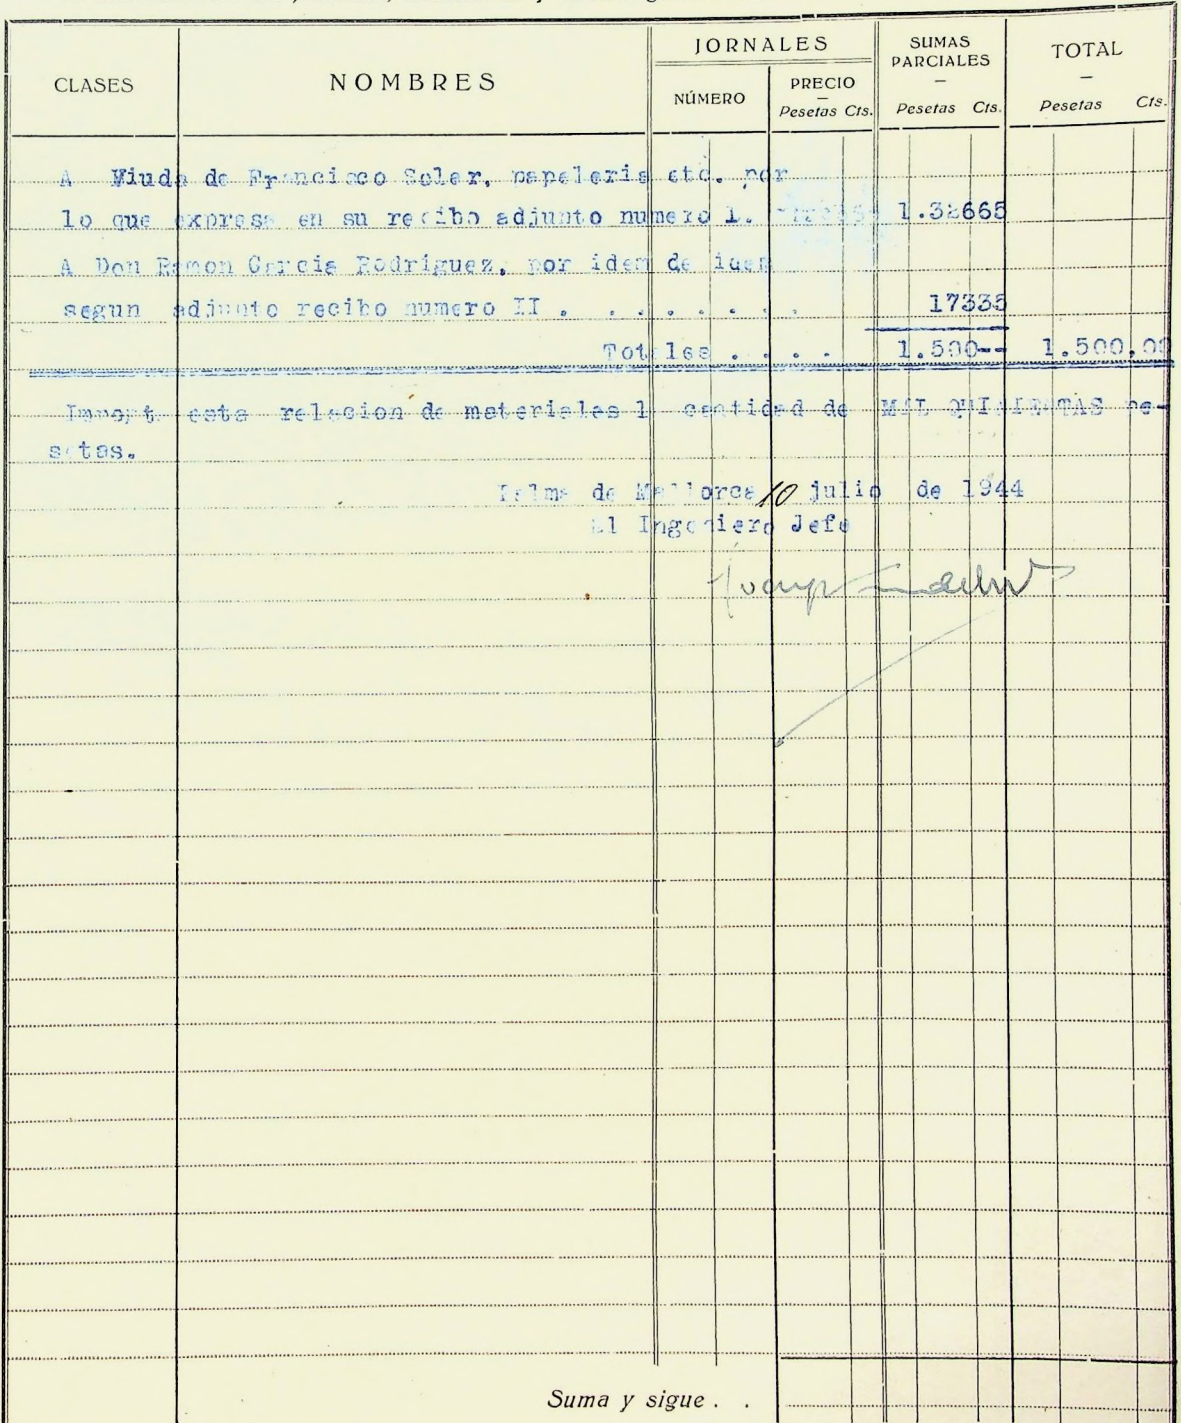 JORNALES SUMAS PARCIALES TOTAL
CLASES NOMBRES NÚMERO PRECIO
Pesetas Cts. Pesetas Cts. Pesetas Cts.
A Viuda de Francisco Soler, papeleria etc. por
lo que expresa en su recibo adjunto numero 1. 1.32665
A Don Ramon Garcia Rodriguez, por idem de idem
segun adjunto recibo numero II . . . . . . . 17335
Totales . . . . 1.500-- 1.500,00
Importa esta relacion de materiales la cantidad de MIL QUINIENTAS pe-
setas.
Palma de Mallorca 10 julio de 1944
El Ingeniero Jefe
Suma y sigue . .